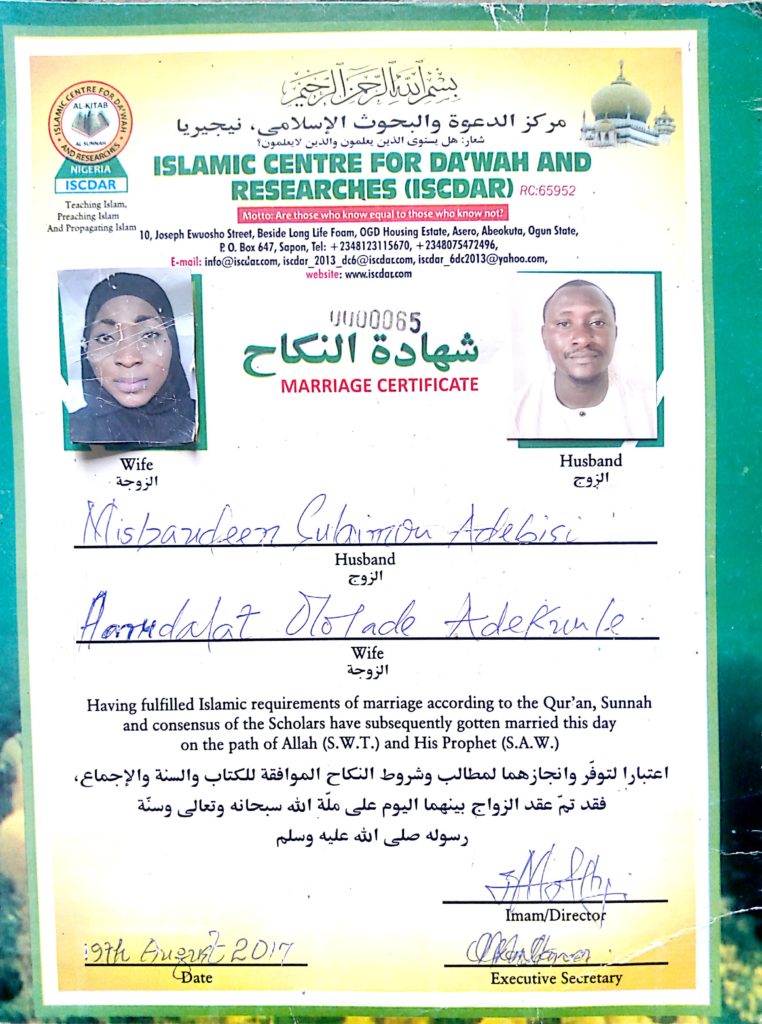 بسم الله الرحمن الرحيم
مركز الدعوة والبحوث الإسلامي، نيجيريا
شعار: هل يستوى الذين يعلمون والذين لايعلمون؟
ISLAMIC CENTRE FOR DA'WAH AND RESEARCHES
AL-KITAB
AL-SUNNAH
NIGERIA
ISCDAR
Teaching Islam,
Preaching Islam
And Propagating Islam
ISLAMIC CENTRE FOR DA'WAH AND
RESEARCHES (ISCDAR) RC:65952
Motto: Are those who know equal to those who know not?
10, Joseph Ewuosho Street, Beside Long Life Foam, OGD Housing Estate, Asero, Abeokuta, Ogun State,
P. O. Box 647, Sapon, Tel: +2348123115670, +2348075472496,
E-mail: info@iscdar.com, iscdar_2013_dc6@iscdar.com, iscdar_6dc2013@yahoo.com,
website: www.iscdar.com
0000065
شهادة النكاح
MARRIAGE CERTIFICATE
Wife
الزوجة
Husband
الزوج
Misbaudeen Sulaimon Adebisi
Husband
الزوج
Olotade Adekunle
Wife
الزوجة
Having fulfilled Islamic requirements of marriage according to the Qur'an, Sunnah
and consensus of the Scholars have subsequently gotten married this day
on the path of Allah (S.W.T.) and His Prophet (S.A.W.)
اعتبارا لتوفّر وانجازهما لمطالب وشروط النكاح الموافقة للكتاب والسنة والإجماع،
فقد تمّ عقد الزواج بينهما اليوم على ملّة الله سبحانه وتعالى وسنّة
رسوله صلى الله عليه وسلم
Imam/Director
19th August 2017
Date
Executive Secretary